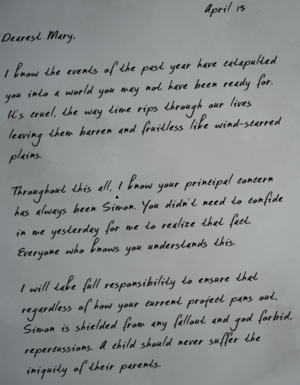 April 15
Dearest Mary,
I know the events of the past year have catapulted
you into a world you may not have been ready for.
It's cruel, the way time rips through our lives
leaving them barren and fruitless like wind-scarred
plains.
Throughout this all, I know your principal concern
has always been Simon. You didn't need to confide
in me yesterday for me to realize that fact.
Everyone who knows you understands this.
I will take full responsibility to ensure that
regardless of how your current project pans out,
Simon is shielded from any fallout and god forbid,
repercussions. A child should never suffer the
iniquity of their parents.